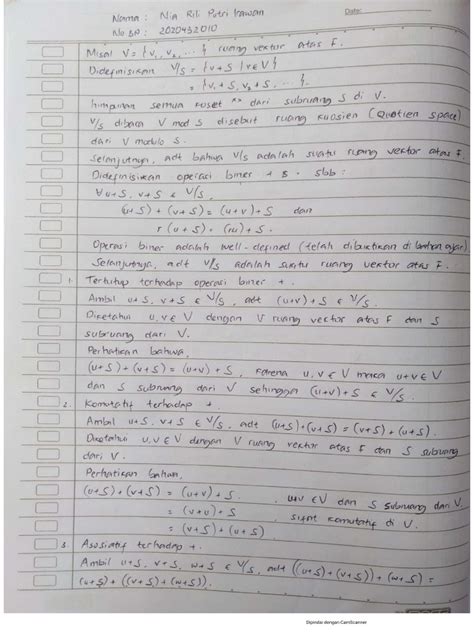 Nama : Nia Rili Putri Irawan
Date:
No BP : 2020432010
Misal V = {v₁, v₂, ...} ruang vektor atas F.
Didefinisikan V/S = {v+S | v ∈ V}
= {v₁+S, v₂+S, ...}.
himpunan semua koset dari subruang S di V.
V/S dibaca V mod S disebut ruang kuosien (Quotien space)
dari V modulo S.
Selanjutnya, adt bahwa V/S adalah suatu ruang vektor atas F.
Didefinisikan operasi biner + & · sbb:
∀ u+S, v+S ∈ V/S,
(u+S) + (v+S) = (u+v)+S dan
r(u+S) = (ru)+S.
Operasi biner adalah well-defined (telah dibuktikan di bahan ajar)
Selanjutnya, adt V/S adalah suatu ruang vektor atas F.
1. Tertutup terhadap operasi biner +.
Ambil u+S, v+S ∈ V/S, adt (u+v)+S ∈ V/S.
Diketahui u,v ∈ V dengan V ruang vektor atas F dan S
subruang dari V.
Perhatikan bahwa,
(u+S) + (v+S) = (u+v)+S, karena u,v ∈ V maka u+v ∈ V
dan S subruang dari V sehingga (u+v)+S ∈ V/S.
2. Komutatif terhadap +.
Ambil u+S, v+S ∈ V/S, adt (u+S)+(v+S) = (v+S)+(u+S).
Diketahui u,v ∈ V dengan V ruang vektor atas F dan S subruang
dari V.
Perhatikan bahan,
(u+S) + (v+S) = (u+v)+S. u+v ∈ V dan S subruang dari V.
= (v+u)+S , sifat komutatif di V.
= (v+S) + (u+S).
3. Asosiatif terhadap +.
Ambil u+S, v+S, w+S ∈ V/S, adt ((u+S)+(v+S))+(w+S) =
(u+S) + ((v+S)+(w+S)).
Dipindai dengan CamScanner